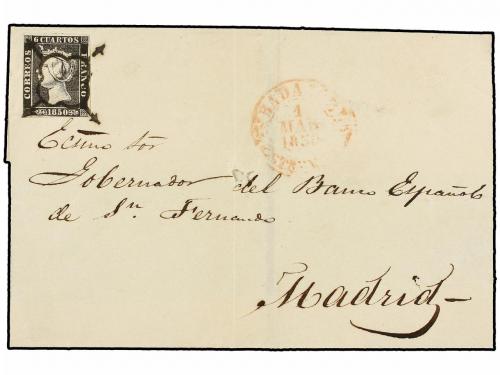 6 CUARTOS
CORREOS
FRANCO
1850
1
MAR
1850
Ecsmo Sor
Gobernador del Banco Español
de Sn. Fernando
Madrid